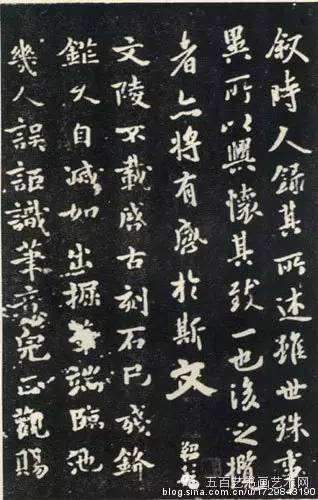 叙時人錄其所述雖世殊事
異所以興懷其致一也後之攬
者亦將有感於斯文
文陵不載古刻石已殘
自減如出掘筆端臨池
幾人誤詎識筆意宛正觀賜
画艺术网
blog.sina.com.cn/u/1729843190